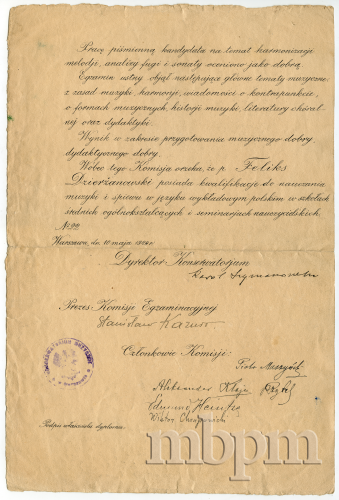 Pracę piśmienną kandydata na temat harmonizacji
melodji, analizy fugi i sonaty oceniono jako dobrą.
Egzamin ustny objął następujące główne tematy muzyczne:
z zasad muzyki, harmonji, wiadomości o kontrapunkcie,
o formach muzycznych, historji muzyki, literatury chóral-
nej oraz dydaktyki.
Wynik w zakresie przygotowania muzycznego dobry
dydaktycznego dobry.
Wobec tego Komisja orzeka, że p. Feliks
Dzierżanowski posiada kwalifikacje do nauczania
muzyki i śpiewu w języku wykładowym polskim w szkołach
średnich ogólnokształcących i seminarjach nauczycielskich.
Warszawa, dn. 10 maja
Dyrektor Konserwatorjum
Karol Szymanowski
Prezes Komisji Egzaminacyjnej
Stanisław Kazuro
Członkowie Komisji:
Piotr
Aleksander
Edmund
Wiktor
Podpis właściciela dyplomu.
mbpm